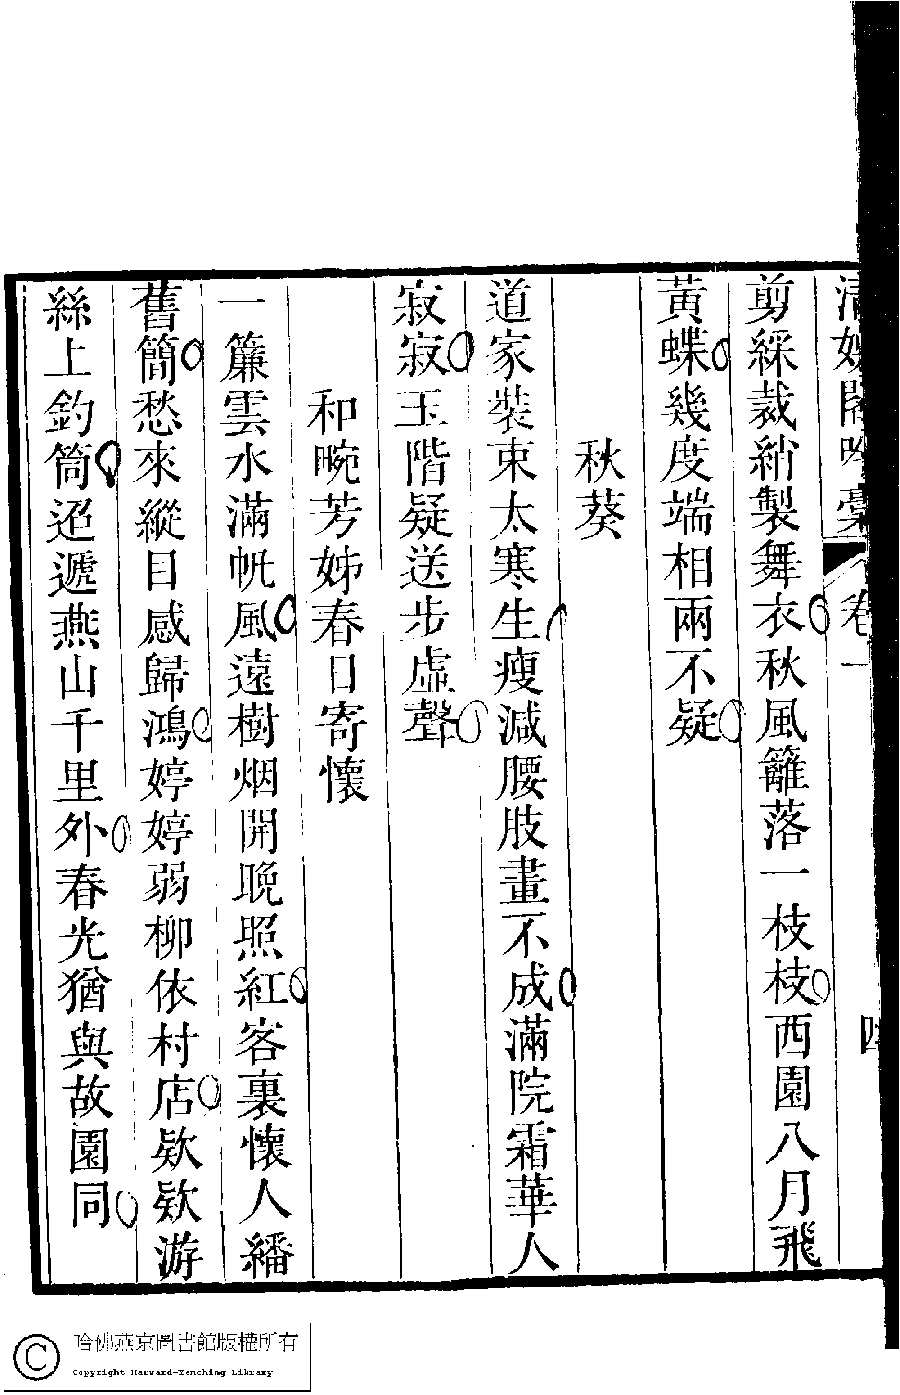 清娛閣吟藁 卷一 四
剪綵裁綃製舞衣秋風籬落一枝枝西園八月飛
黃蝶幾度端相兩不疑
秋葵
道家裝束太寒生瘦減腰肢畫不成滿院霜華人
寂寂玉階疑送步虛聲
和畹芳姊春日寄懷
一簾雲水滿帆風遠樹烟開晚照紅客裏懷人繙
舊簡愁來縱目感歸鴻婷婷弱柳依村店欵欵游
絲上釣筒迢遞燕山千里外春光猶與故園同
哈佛燕京圖書館版權所有
Copyright Harvard-Yenching Library